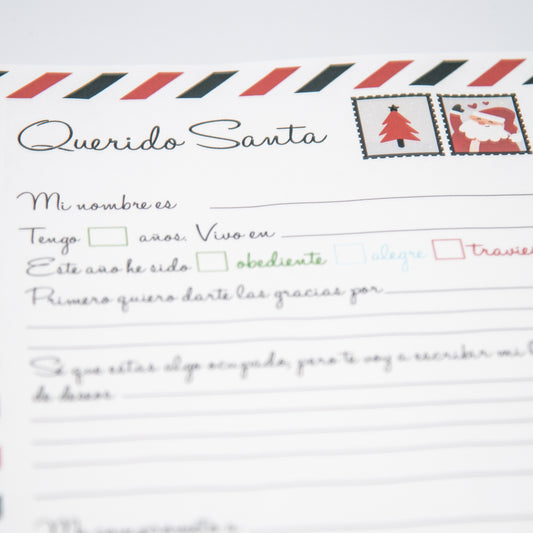 Querido Santa
Mi nombre es
Tengo años. Vivo en
Este año he sido obediente alegre travie
Primero quiero darte las gracias por
Sé que estás algo ocupado, pero te voy a escribir mi
de deseos